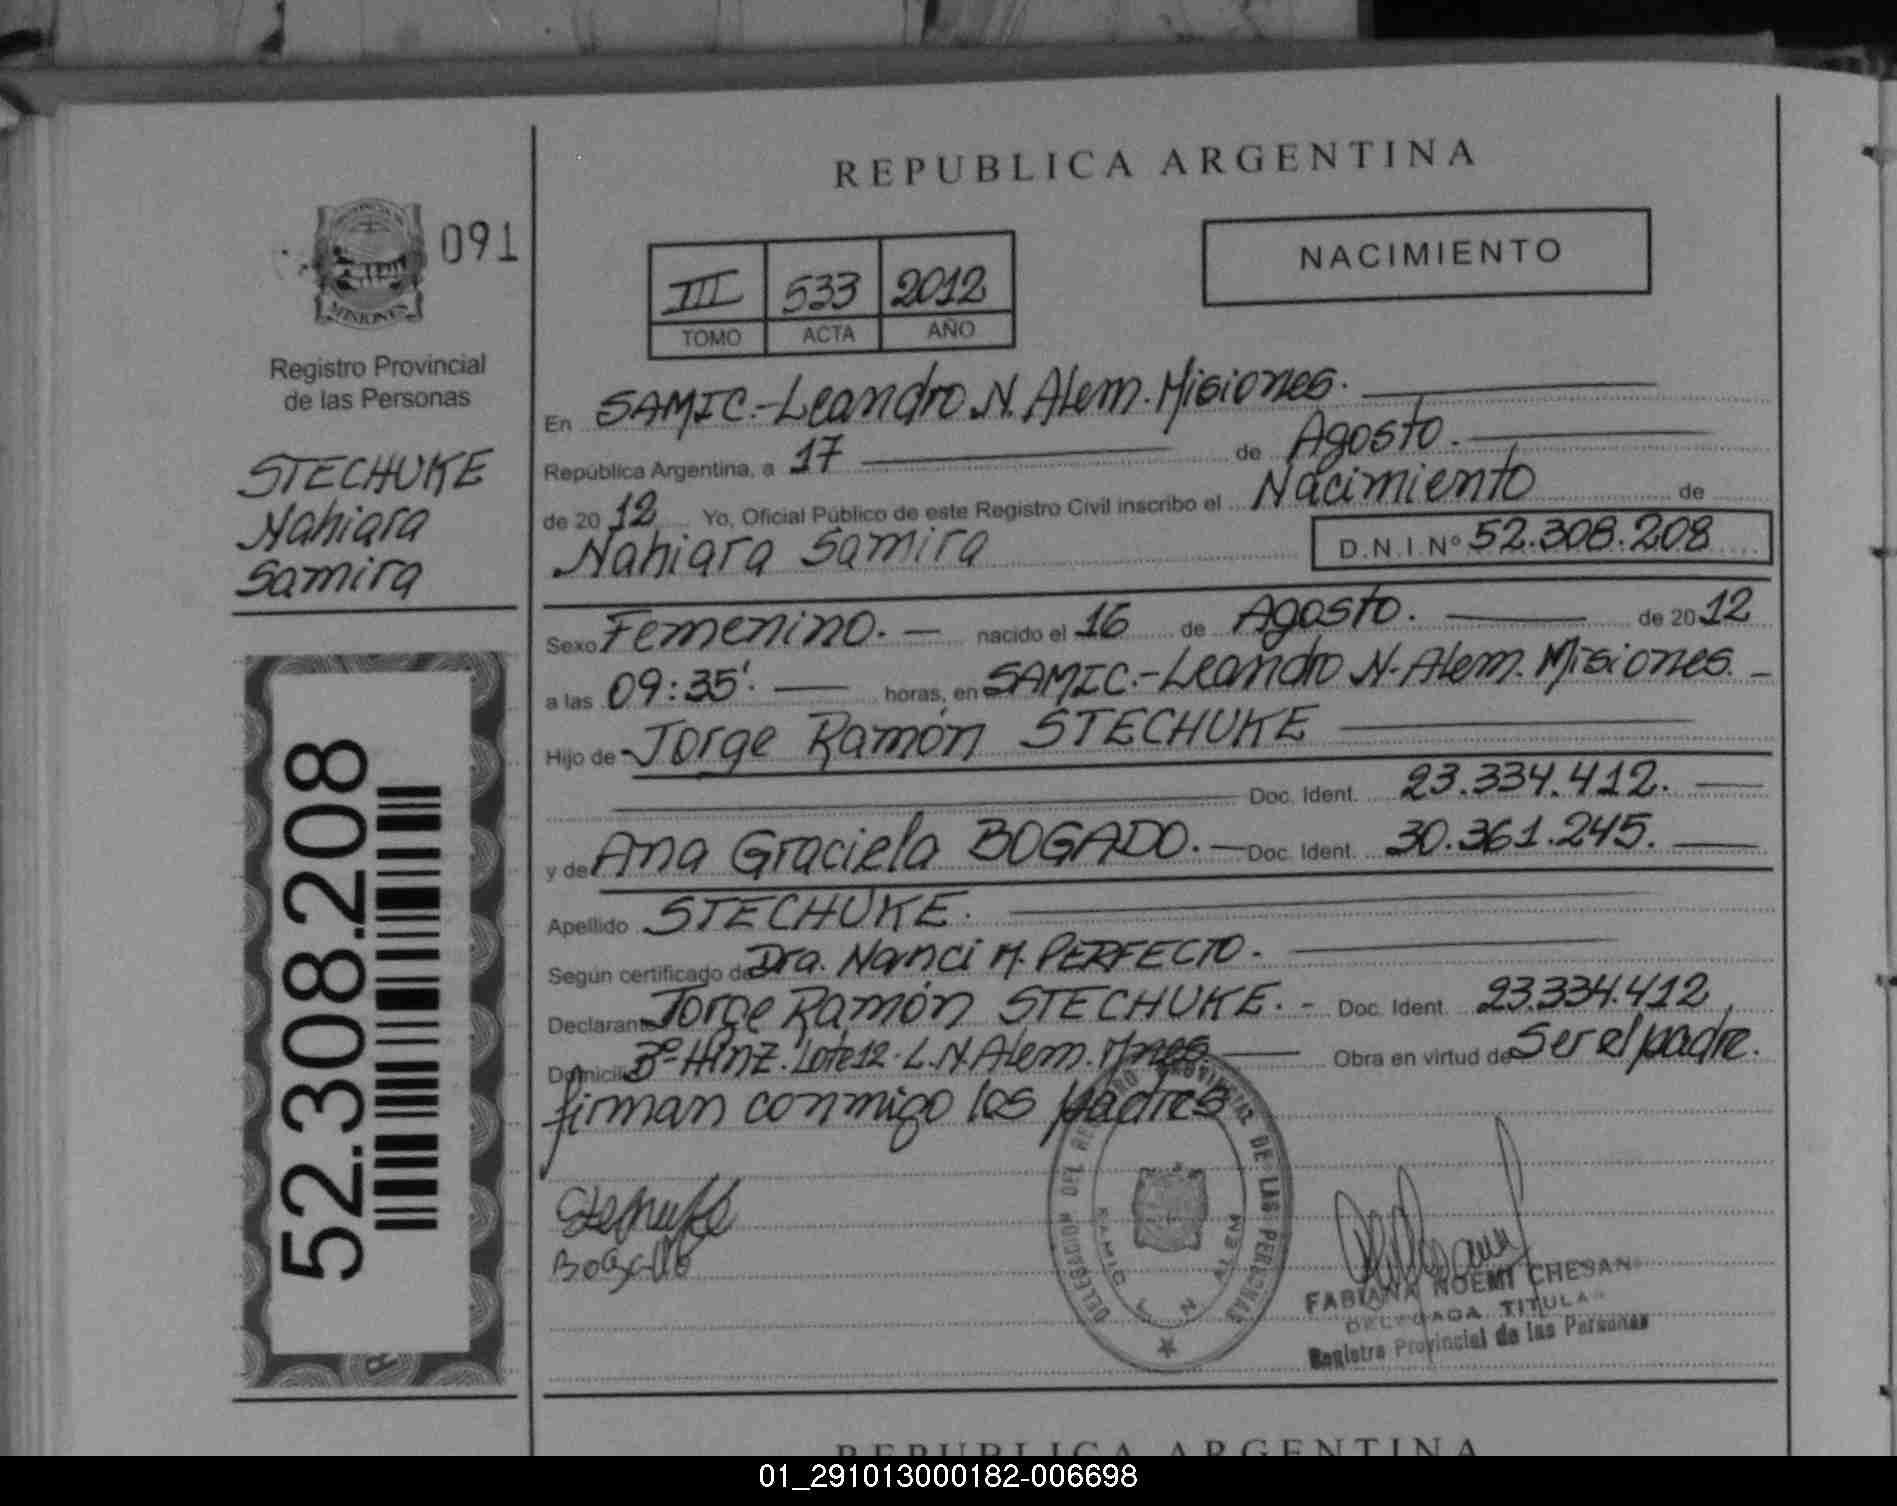 REPUBLICA ARGENTINA
MISIONES
091
Registro Provincial
de las Personas
STECHUKE
Nahiara
Samira
52.308.208
III 533 2012
TOMO ACTA AÑO
NACIMIENTO
En SAMIC.-Leandro N. Alem. Misiones.
República Argentina, a 17 de Agosto.
de 20 12 Yo, Oficial Público de este Registro Civil inscribo el Nacimiento de
Nahiara Samira D.N.I. Nº 52.308.208
Sexo Femenino. nacido el 16 de Agosto. de 20 12
a las 09:35'. horas, en SAMIC.-Leandro N. Alem. Misiones.
Hijo de Jorge Ramón STECHUKE
Doc. Ident. 23.334.412.
y de Ana Graciela BOGADO. Doc. Ident. 30.361.245.
Apellido STECHUKE.
Según certificado de Dra. Nanci M. PERFECTO.
Declarante Jorge Ramón STECHUKE. Doc. Ident. 23.334.412
Domicilio Bº-HINZ. Lote 12. L.N.Alem. Mnes. Obra en virtud de Ser el padre.
firman conmigo los padres
DELEGACION DEL REGISTRO PROVINCIAL DE LAS PERSONAS
SAMIC N ALEM
FABIANA NOEMI CHESAN
DELEGADA TITULAR
Registro Provincial de las Personas
REPUBLICA ARGENTINA
01_291013000182-006698